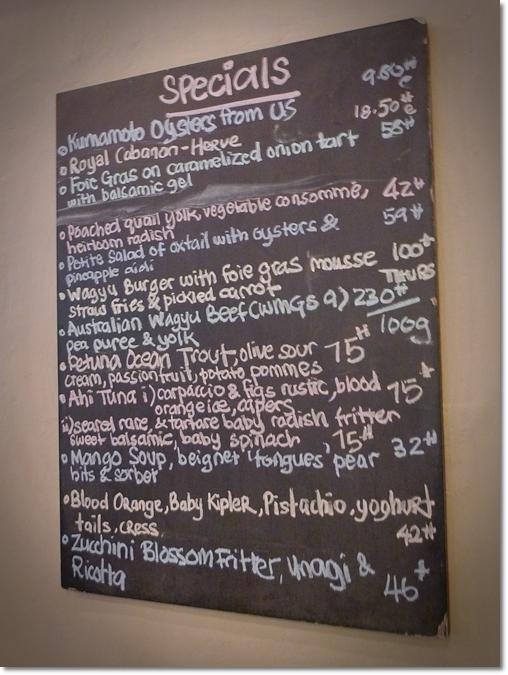 Specials
Kumamoto Oysters from US 9.80++ e
Royal Cabanon-Herve 18.50++ e
Foie Gras on caramelized onion tart 58++
with balsamic gel
Poached quail yolk, vegetable consommé, 42++
heirloom radish
Petite Salad of oxtail with oysters & 59++
pineapple aioli
Wagyu Burger with foie gras mousse 100++
straw fries & pickled carrot THURS
Australian Wagyu Beef (WMGS 9) 230++
pea puree & yolk 100g
Petuna Ocean Trout, olive sour 75++
cream, passionfruit, potato pommes
Ahi Tuna i) carpaccio & figs rustic, blood 75+
orange ice, capers
ii) seared rare, & tartare baby radish fritter
sweet balsamic, baby spinach 75++
Mango Soup, beignet 'tongues' pear 32++
bits & sorbet
Blood Orange, Baby Kipler, Pistachio, yoghurt
tails, cress 42++
Zucchini Blossom Fritter, Unagi &
Ricotta 46+